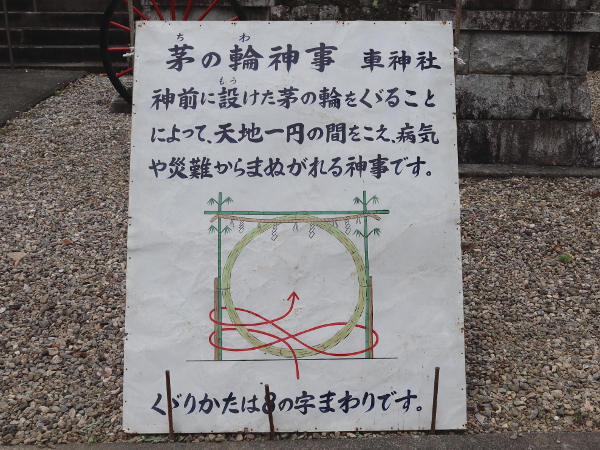 ち わ
茅の輪神事 車神社
もう
神前に設けた茅の輪をくゞること
によって、天地一円の間をこえ、病気
や災難からまぬがれる神事です。
くゞりかたは8の字まわりです。